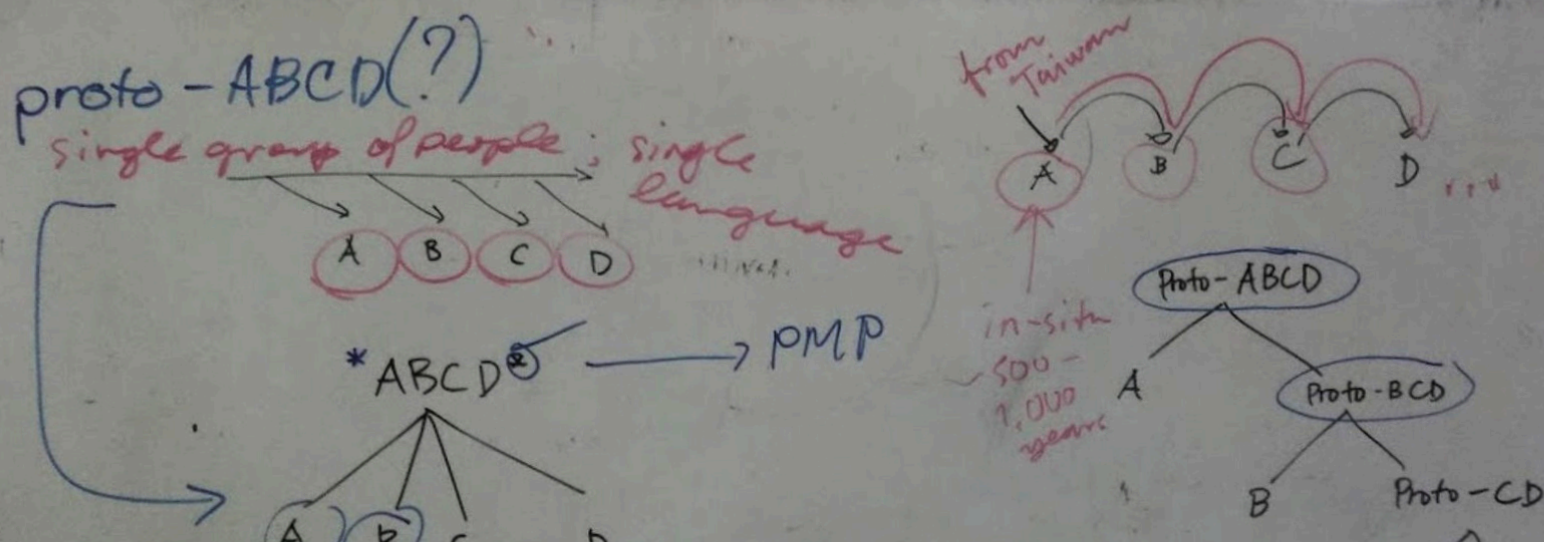 proto - ABCD (?)
single group of people ; single
language
A B C D
* ABCD
→ PMP
A B C D
from
Taiwan
A B C D ...
in-situ
~500 -
1,000
years
Proto- ABCD
A
Proto-BCD
B
Proto-CD